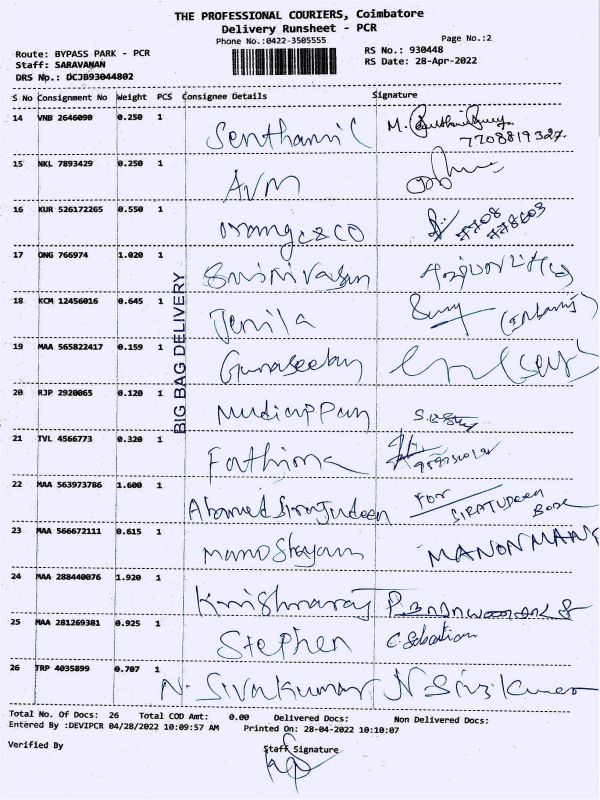 THE PROFESSIONAL COURIERS, Coimbatore
Delivery Runsheet - PCR
Phone No.:0422-3505555 Page No.:2
Route: BYPASS PARK - PCR RS No.: 930448
Staff: SARAVANAN RS Date: 28-Apr-2022
DRS Np.: DCJB93044802
S No Consignment No Weight PCS Consignee Details Signature
14 VNB 2646090 0.250 1 Senthamil M.
7708819327
15 NKL 7893429 0.250 1 AVM
16 KUR 526172265 0.550 1 orange & CO
17 ONG 766974 1.020 1 Srinivasan
18 KCM 12456016 0.645 1 Jenila
19 MAA 565822417 0.159 1 Gunaseelan
20 RJP 2920065 0.120 1 Mudiappan
21 TVL 4566773 0.320 1 Fathima
22 MAA 563973786 1.600 1 Ahamed Sirajudeen For
SIRATUDEEN
23 MAA 566672111 0.615 1 mano Shyam
24 MAA 288440076 1.920 1 Krishnaraj
25 MAA 281269381 0.925 1 Stephen C. Sebastian
26 TRP 4035899 0.707 1 N. Sivakumar N Sivakumar
BIG BAG DELIVERY
Total No. Of Docs: 26 Total COD Amt: 0.00 Delivered Docs: Non Delivered Docs:
Entered By :DEVIPCR 04/28/2022 10:09:57 AM Printed On: 28-04-2022 10:10:07
Verified By Staff Signature